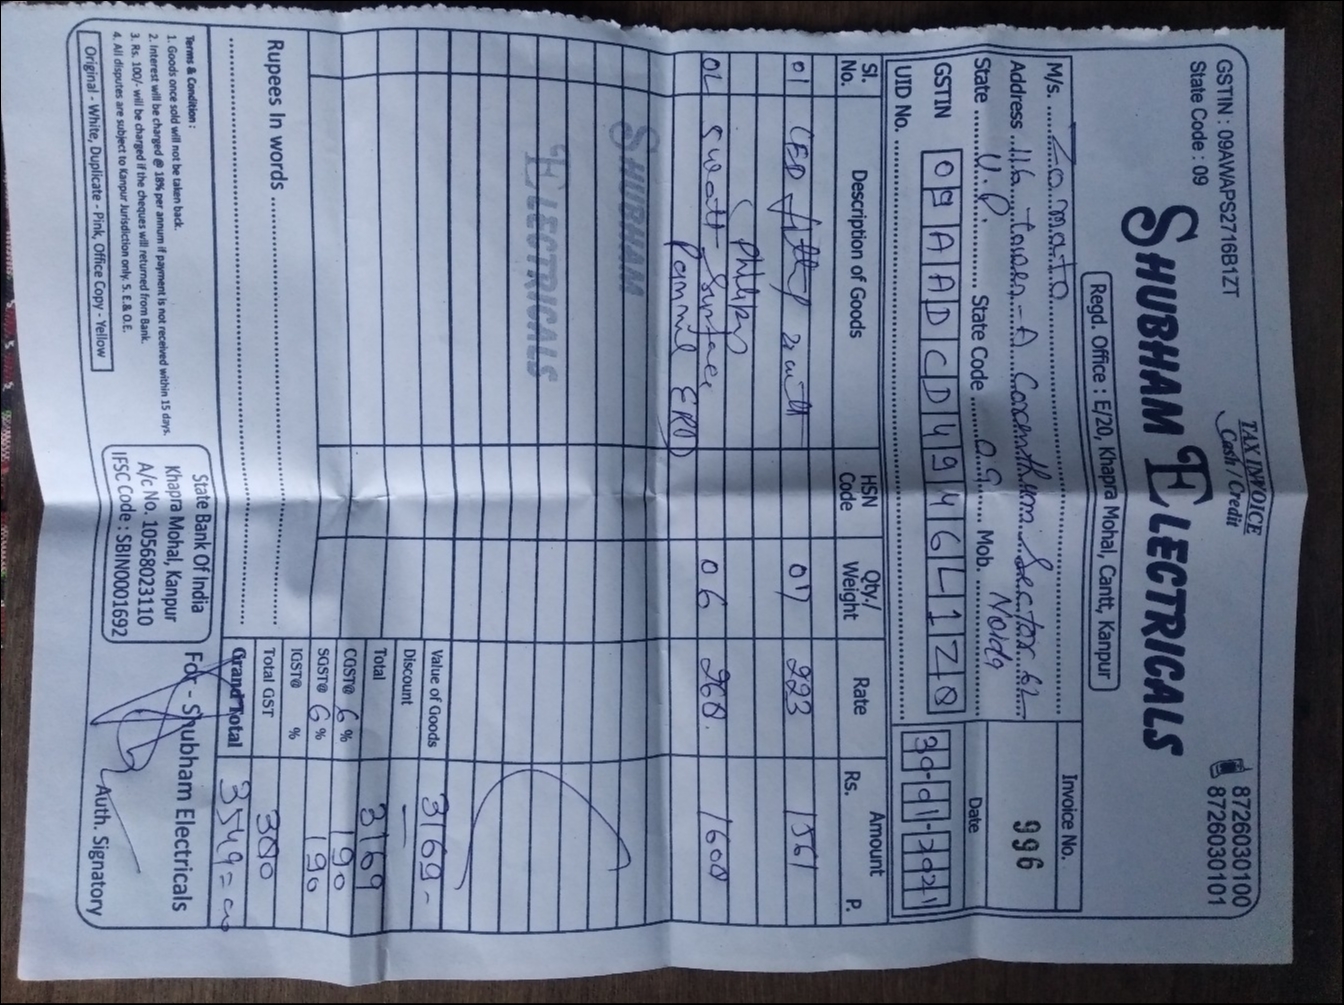 GSTIN : 09AWAPS2716B1ZT
State Code : 09
TAX INVOICE
Cash / Credit
8726030100
8726030101
SHUBHAM ELECTRICALS
Regd. Office : E/20, Khapra Mohal, Cantt, Kanpur
M/s. Zomato
Address 116 Tower - A Corenthum Sector 62
Noida
State U.P. State Code 09 Mob.
GSTIN 09AADCD4946L1ZQ
UID No.
Invoice No.
996
Date
30-01-2021
Sl. No. Description of Goods HSN Code Qty./ Weight Rate Amount Rs. P.
01 LED 07 223 1561
Philips
02 watt Surface 06 268. 1608
Pannel ERD
SHUBHAM
ELECTRICALS
Value of Goods 3169-
Discount —
Total 3169
CGST@ 6 % 190
SGST@ 6 % 190
IGST@ %
Total GST 380
Grand Total 3549=00
Rupees In words
Terms & Condition :
1. Goods once sold will not be taken back.
2. Interest will be charged @ 18% per annum if payment is not received within 15 days.
3. Rs. 100/- will be charged if the cheques will returned from Bank.
4. All disputes are subject to Kanpur Jurisdiction only. S. E.& O.E.
Original - White, Duplicate - Pink, Office Copy - Yellow
State Bank Of India
Khapra Mohal, Kanpur
A/c No. 10568023110
IFSC Code : SBIN0001692
For - Shubham Electricals
Auth. Signatory